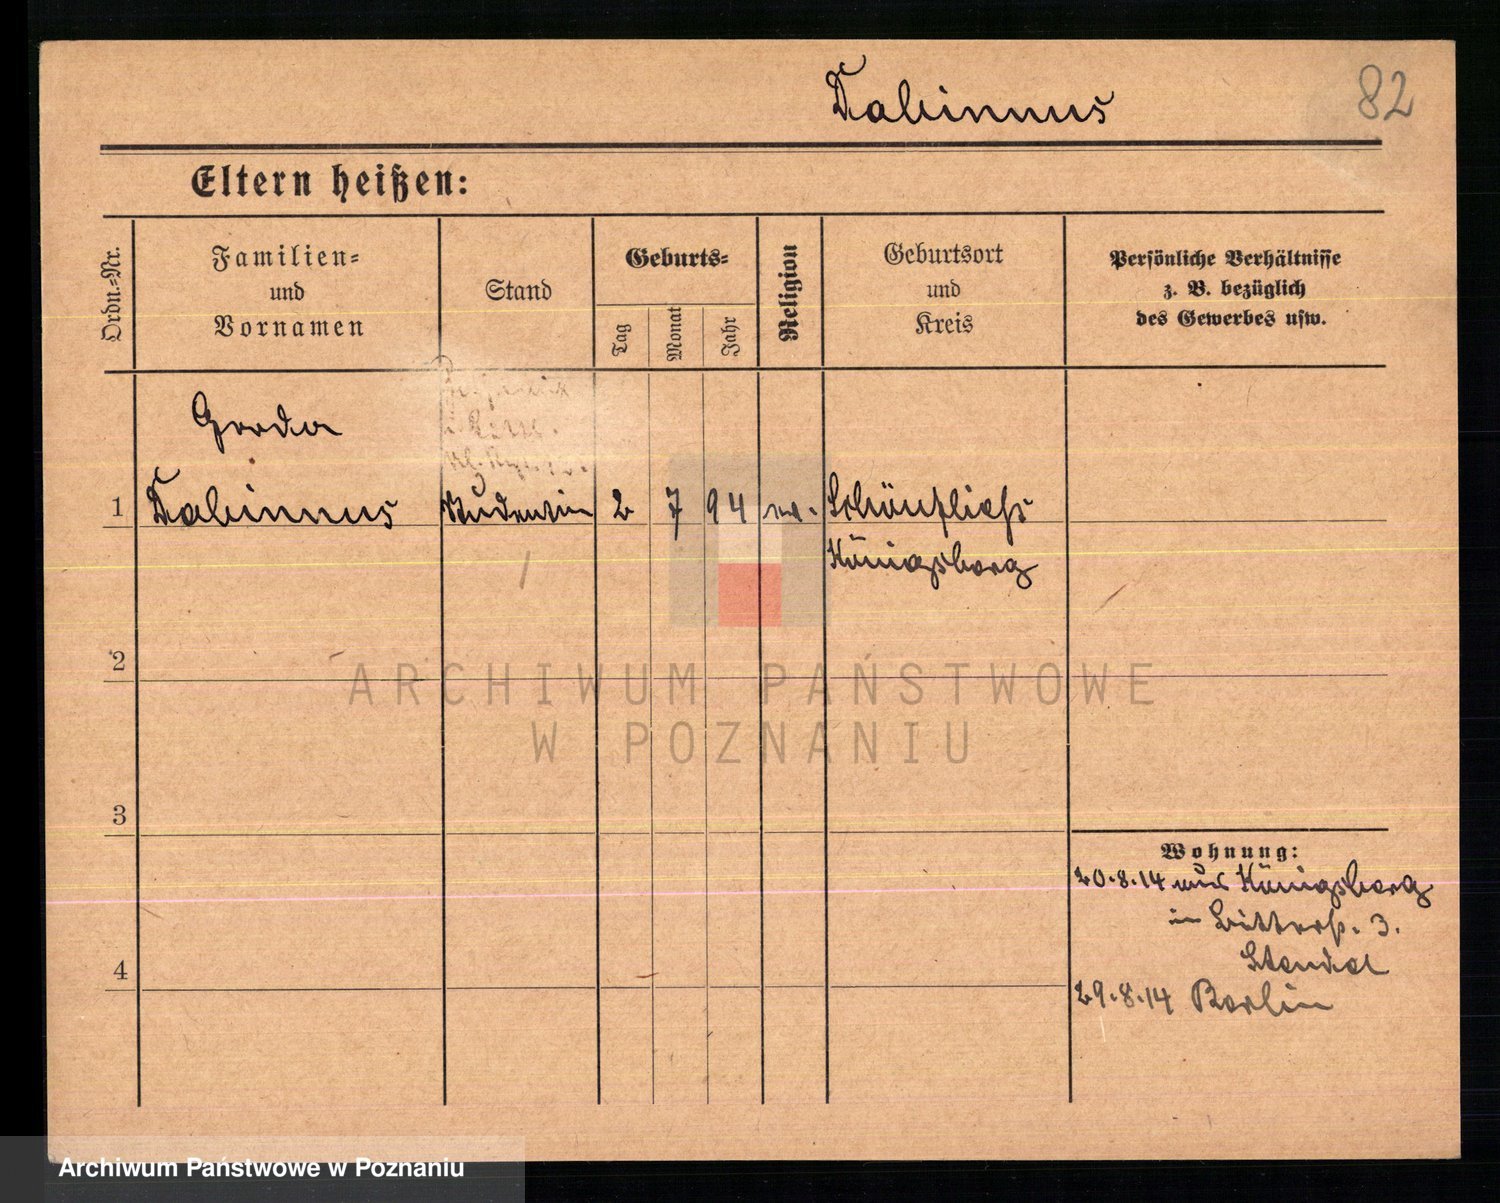 Tabinnus
82
Eltern heißen:
Ordn.-Nr.
Familien-
und
Vornamen
Stand
Geburts-
Tag
Monat
Jahr
Religion
Geburtsort
und
Kreis
Persönliche Verhältnisse
z. B. bezüglich
des Gewerbes usw.
Gerda
1 Tabinnus Studentin 2 7 94 ev. Schönfließ
Königsberg
2
3
4
Wohnung:
20.8.14 aus Königsberg
in 3.
Stendal
29.8.14 Berlin
ARCHIWUM PAŃSTWOWE
W POZNANIU
Archiwum Państwowe w Poznaniu